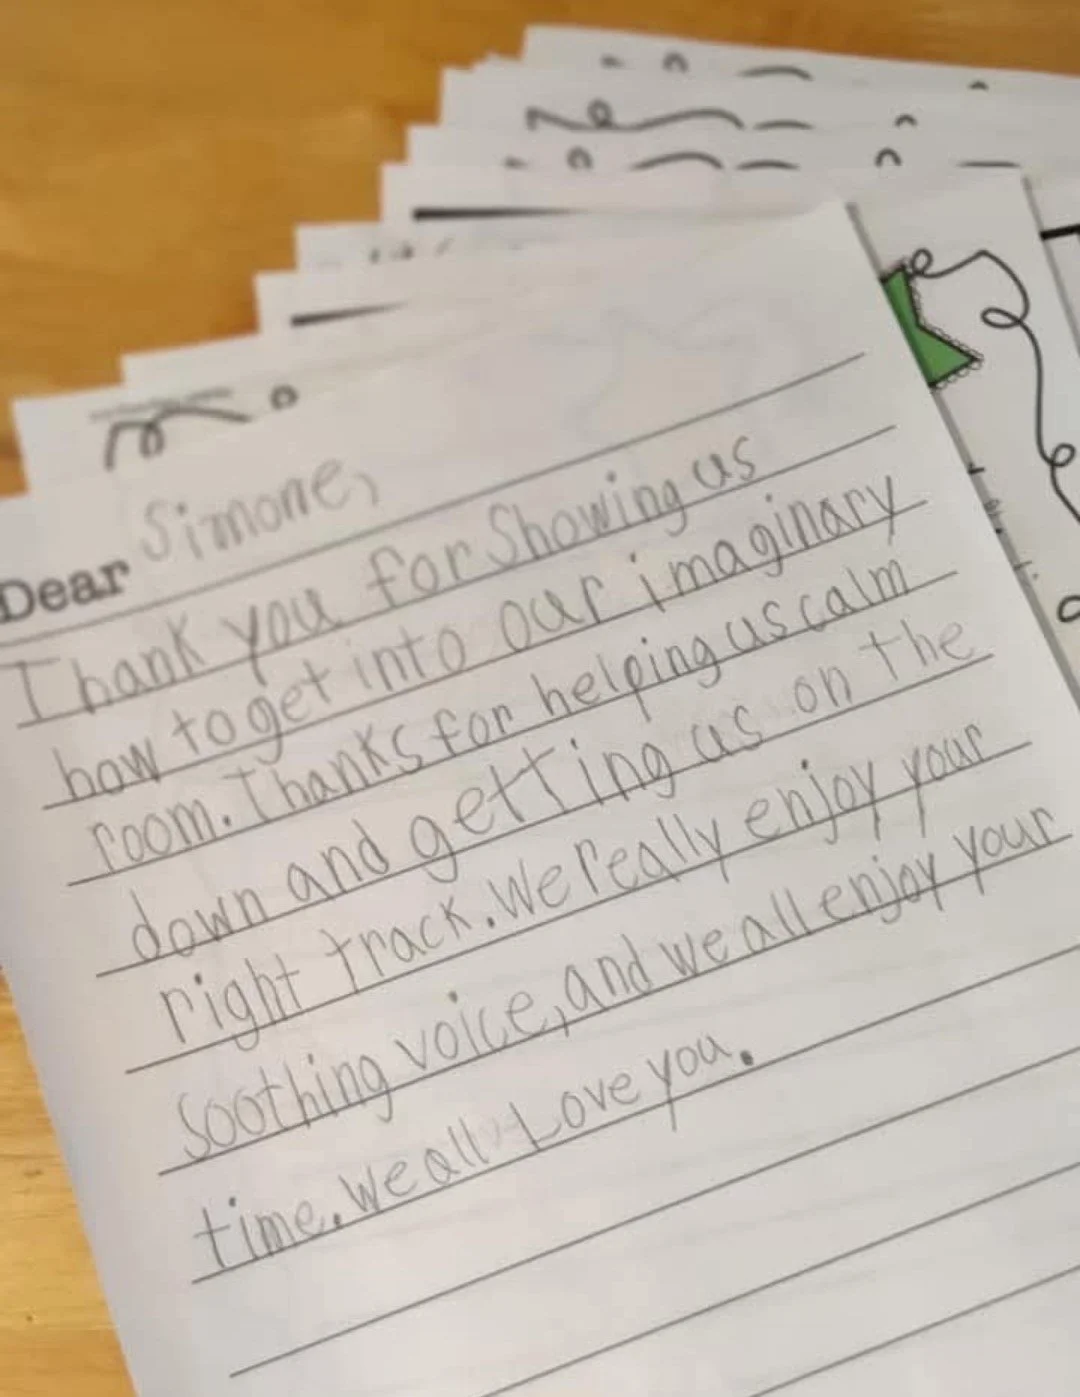 Dear Simone,
Thank you for Showing us
how to get into our imaginary
room. Thanks for helping us calm
down and getting us on the
right track. We really enjoy your
Soothing voice, and we all enjoy your
time. We all Love you.